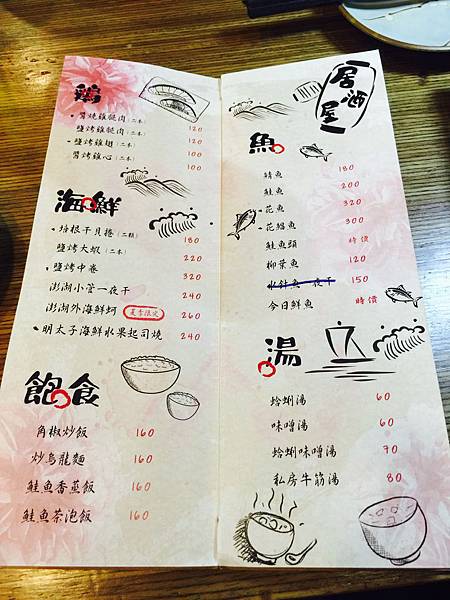 鶏
•醬燒雞腿肉(二本) 120
鹽烤雞腿肉(二本) 120
•鹽烤雞翅(二本) 100
醬烤雞心(二本) 100
海鮮
•培根干貝捲(二顆) 180
鹽烤大蝦(二本) 220
•鹽烤中卷 320
澎湖小管一夜干 240
澎湖外海鮮蚵 夏季限定 260
•明太子海鮮水果起司燒 240
飽食
角椒炒飯 160
炒烏龍麵 160
鮭魚香蔥飯 160
鮭魚茶泡飯 160
居酒屋
魚
鯖魚 180
鮭魚 200
•花魚 320
•花鰱魚 300
鮭魚頭 時價
柳葉魚 120
水針魚一夜干 150
今日鮮魚 時價
湯
蛤蜊湯 60
味噌湯 60
蛤蜊味噌湯 70
私房牛筋湯 80